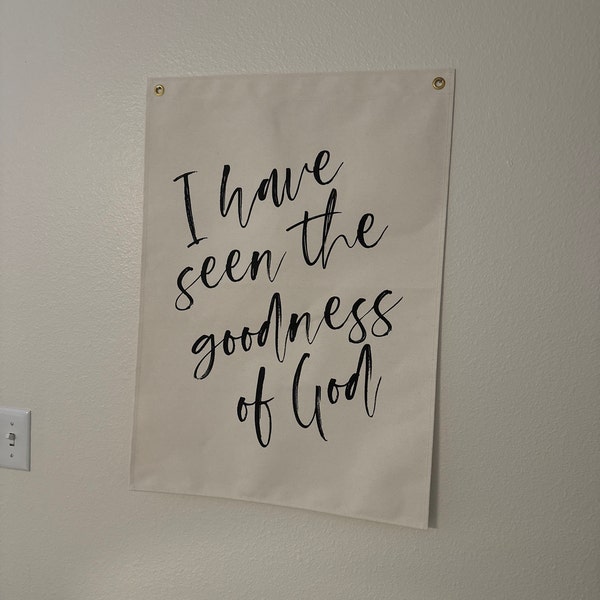 I have
seen the
goodness
of God